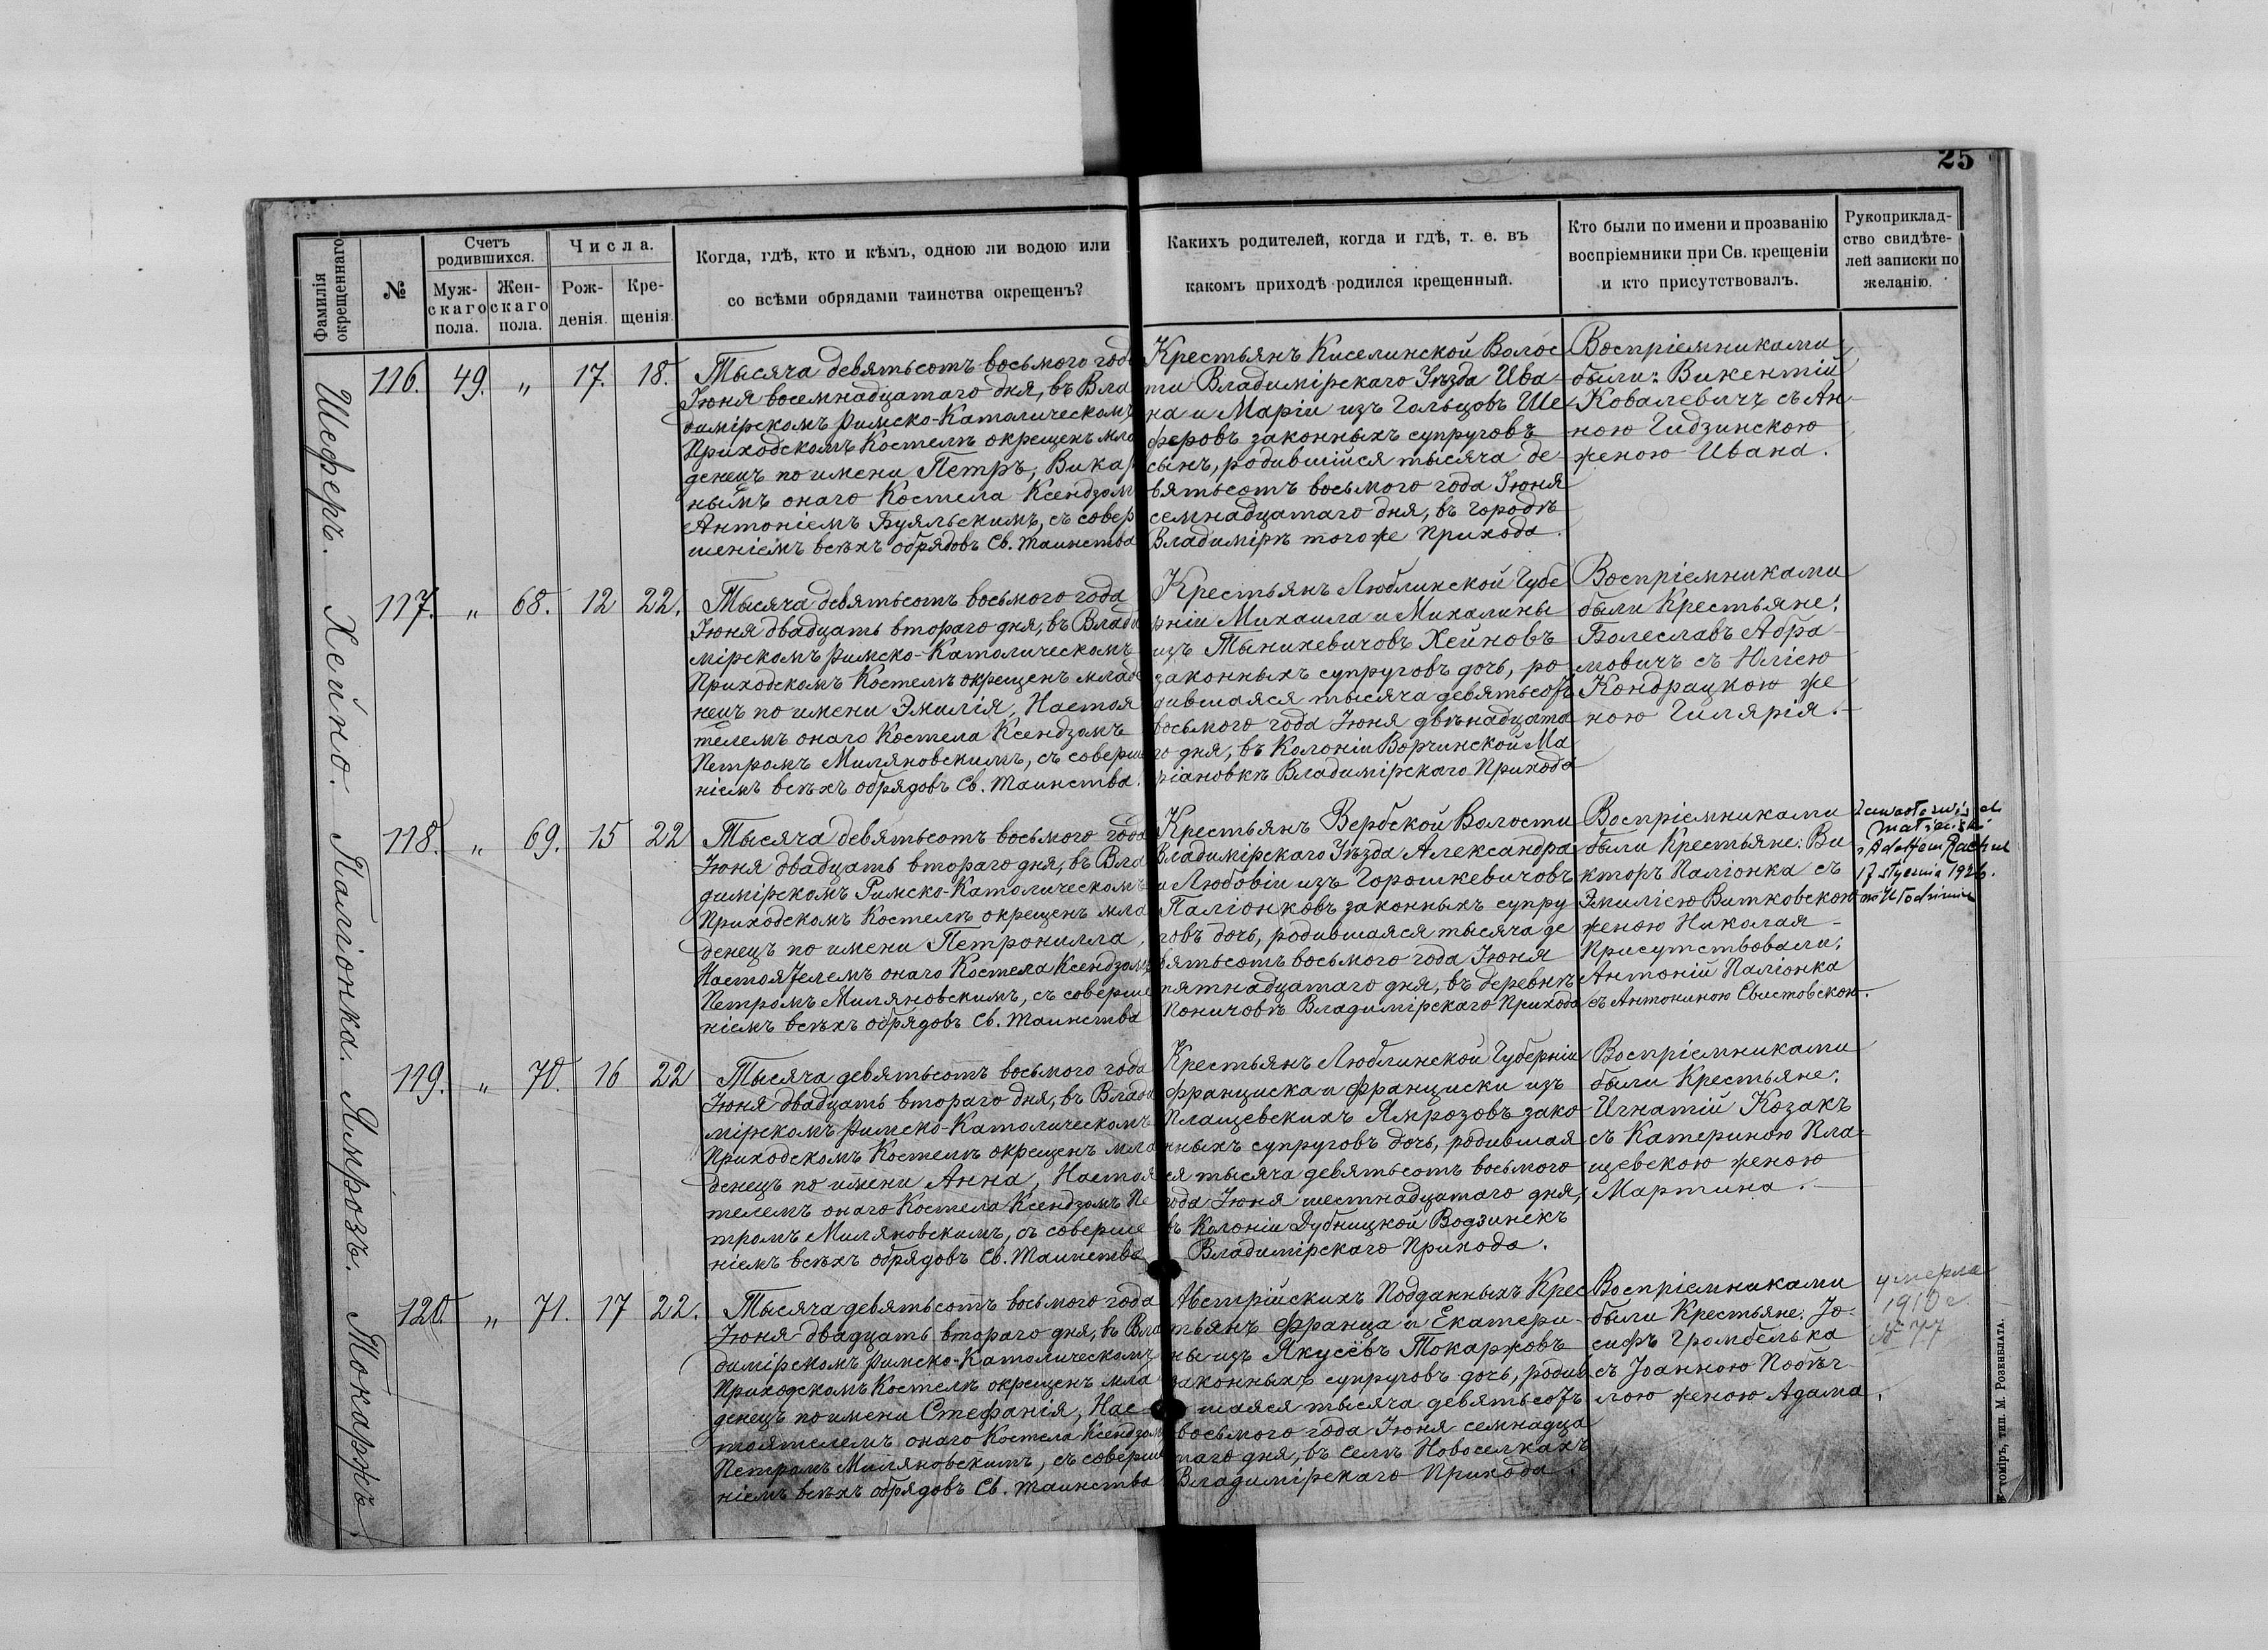 25
Фамилія
окрещеннаго
№
Счетъ
родившихся.
Муж-
скаго
пола.
Жен-
скаго
пола.
Числа.
Рож-
денія.
Кре-
щенія
Когда, гдѣ, кто и кѣмъ, одною ли водою или
со всѣми обрядами таинства окрещенъ?
Какихъ родителей, когда и гдѣ, т. е. въ
какомъ приходѣ родился крещенный.
Кто были по имени и прозванію
воспріемники при Св. крещеніи
и кто присутствовалъ.
Рукоприклад-
ство свидѣте-
лей записки по
желанію.
Шеферъ.
116. 49. „ 17. 18.
Тысяча девятьсотъ восьмого года
Іюня восемнадцатаго дня, въ Вла
димірскомъ Римско-Католическомъ
Приходскомъ Костелѣ окрещенъ мла
денецъ по имени Петръ, Викар
нымъ онаго Костела Ксендзомъ
Антоніемъ Буяльскимъ, съ совер
шеніемъ всѣхъ обрядовъ Св. Таинства
Крестьянъ Киселинской Волос
ти Владимірскаго Уѣзда Ива
на и Маріи изъ Гольцовъ Ше
феровъ законныхъ супруговъ
сынъ, родившійся тысяча де
вятьсотъ восьмого года Іюня
семнадцатаго дня, въ городѣ
Владимірѣ того же Прихода.
Воспріемниками
были: Викентій
Ковалевичъ съ Ан-
ною Гидзинскою
женою Ивана.
Хейно.
117. „ 68. 12 22.
Тысяча девятьсотъ восьмого года
Іюня двадцать второго дня, въ Влади
мірскомъ Римско-Католическомъ
Приходскомъ Костелѣ окрещенъ младе
нецъ по имени Эмилія, Настоя
телемъ онаго Костела Ксендзомъ
Петромъ Миляновскимъ, съ соверше
ніемъ всѣхъ обрядовъ Св. Таинства.
Крестьянъ Люблинской Губе
рніи Михаила и Михалины
изъ Тынихевичовъ Хейновъ
законныхъ супруговъ дочь, ро
дившаяся тысяча девятьсотъ
восьмого года Іюня двѣнадцата
го дня, въ Колоніи Ворчинской Ма
ріановкѣ Владимірскаго Прихода
Воспріемниками
были Крестьяне:
Болеславъ Абра-
мовичъ съ Юліею
Кондрацкою же
ною Гилярія.
Паліонка.
118. „ 69. 15 22
Тысяча девятьсотъ восьмого года
Іюня двадцать второго дня, въ Вла
димірскомъ Римско-Католическомъ
Приходскомъ Костелѣ окрещенъ мла
денецъ по имени Петронилла,
Настоятелемъ онаго Костела Ксендзомъ
Петромъ Миляновскимъ, съ соверше
ніемъ всѣхъ обрядовъ Св. Таинства
Крестьянъ Вербской Волости
Владимірскаго Уѣзда Александра
и Любовіи изъ Горошкевичовъ
Паліонковъ законныхъ супру
говъ дочь, родившаяся тысяча де
вятьсотъ восьмого года Іюня
пятнадцатаго дня, въ деревнѣ
Поничовѣ Владимірскаго Прихода
Воспріемниками
были Крестьяне: Ви
кторъ Паліонка съ
Эмиліею Витковскою
женою Николая
Присутствовали:
Антоній Паліонка
съ Антониною Свистовскою.
17 stycznia 1926.
Ямрозъ.
119. „ 70. 16 22
Тысяча девятьсотъ восьмого года
Іюня двадцать второго дня, въ Влади
мірскомъ Римско-Католическомъ
Приходскомъ Костелѣ окрещенъ мла
денецъ по имени Анна, Настоя
телемъ онаго Костела Ксендзомъ Пе
тромъ Миляновскимъ, съ соверше
ніемъ всѣхъ обрядовъ Св. Таинства
Крестьянъ Люблинской Губерніи
Франциска и Франциски изъ
Плащевскихъ Ямрозовъ зако
нныхъ супруговъ дочь, родившая
ся тысяча девятьсотъ восьмого
года Іюня шестнадцатаго дня,
въ Колоніи Дубницкой Водзинѣкъ
Владимірскаго Прихода.
Воспріемниками
были Крестьяне:
Игнатій Козакъ
съ Катериною Пла
щевскою женою
Мартина.
Токаржъ.
120. „ 71. 17 22.
Тысяча девятьсотъ восьмого года
Іюня двадцать второго дня, въ Вла
димірскомъ Римско-Католическомъ
Приходскомъ Костелѣ окрещенъ мла
денецъ по имени Стефанія, Нас
тоятелемъ онаго Костела Ксендзомъ
Петромъ Миляновскимъ, съ соверше
ніемъ всѣхъ обрядовъ Св. Таинства
Австрійскихъ Подданныхъ Крес
тьянъ Франца и Екатери-
ны изъ Якусёвъ Токаржовъ
законныхъ супруговъ дочь, родив
шаяся тысяча девятьсотъ
восьмого года Іюня семнадца
таго дня, въ селѣ Новоселкахъ
Владимірскаго Прихода.
Воспріемниками
были Крестьяне: Іо-
сифъ Громбелька
съ Іоанною Побѣг
лою женою Адама.
умерла
1910 г.
№ 77
тип. М. Розенблата.